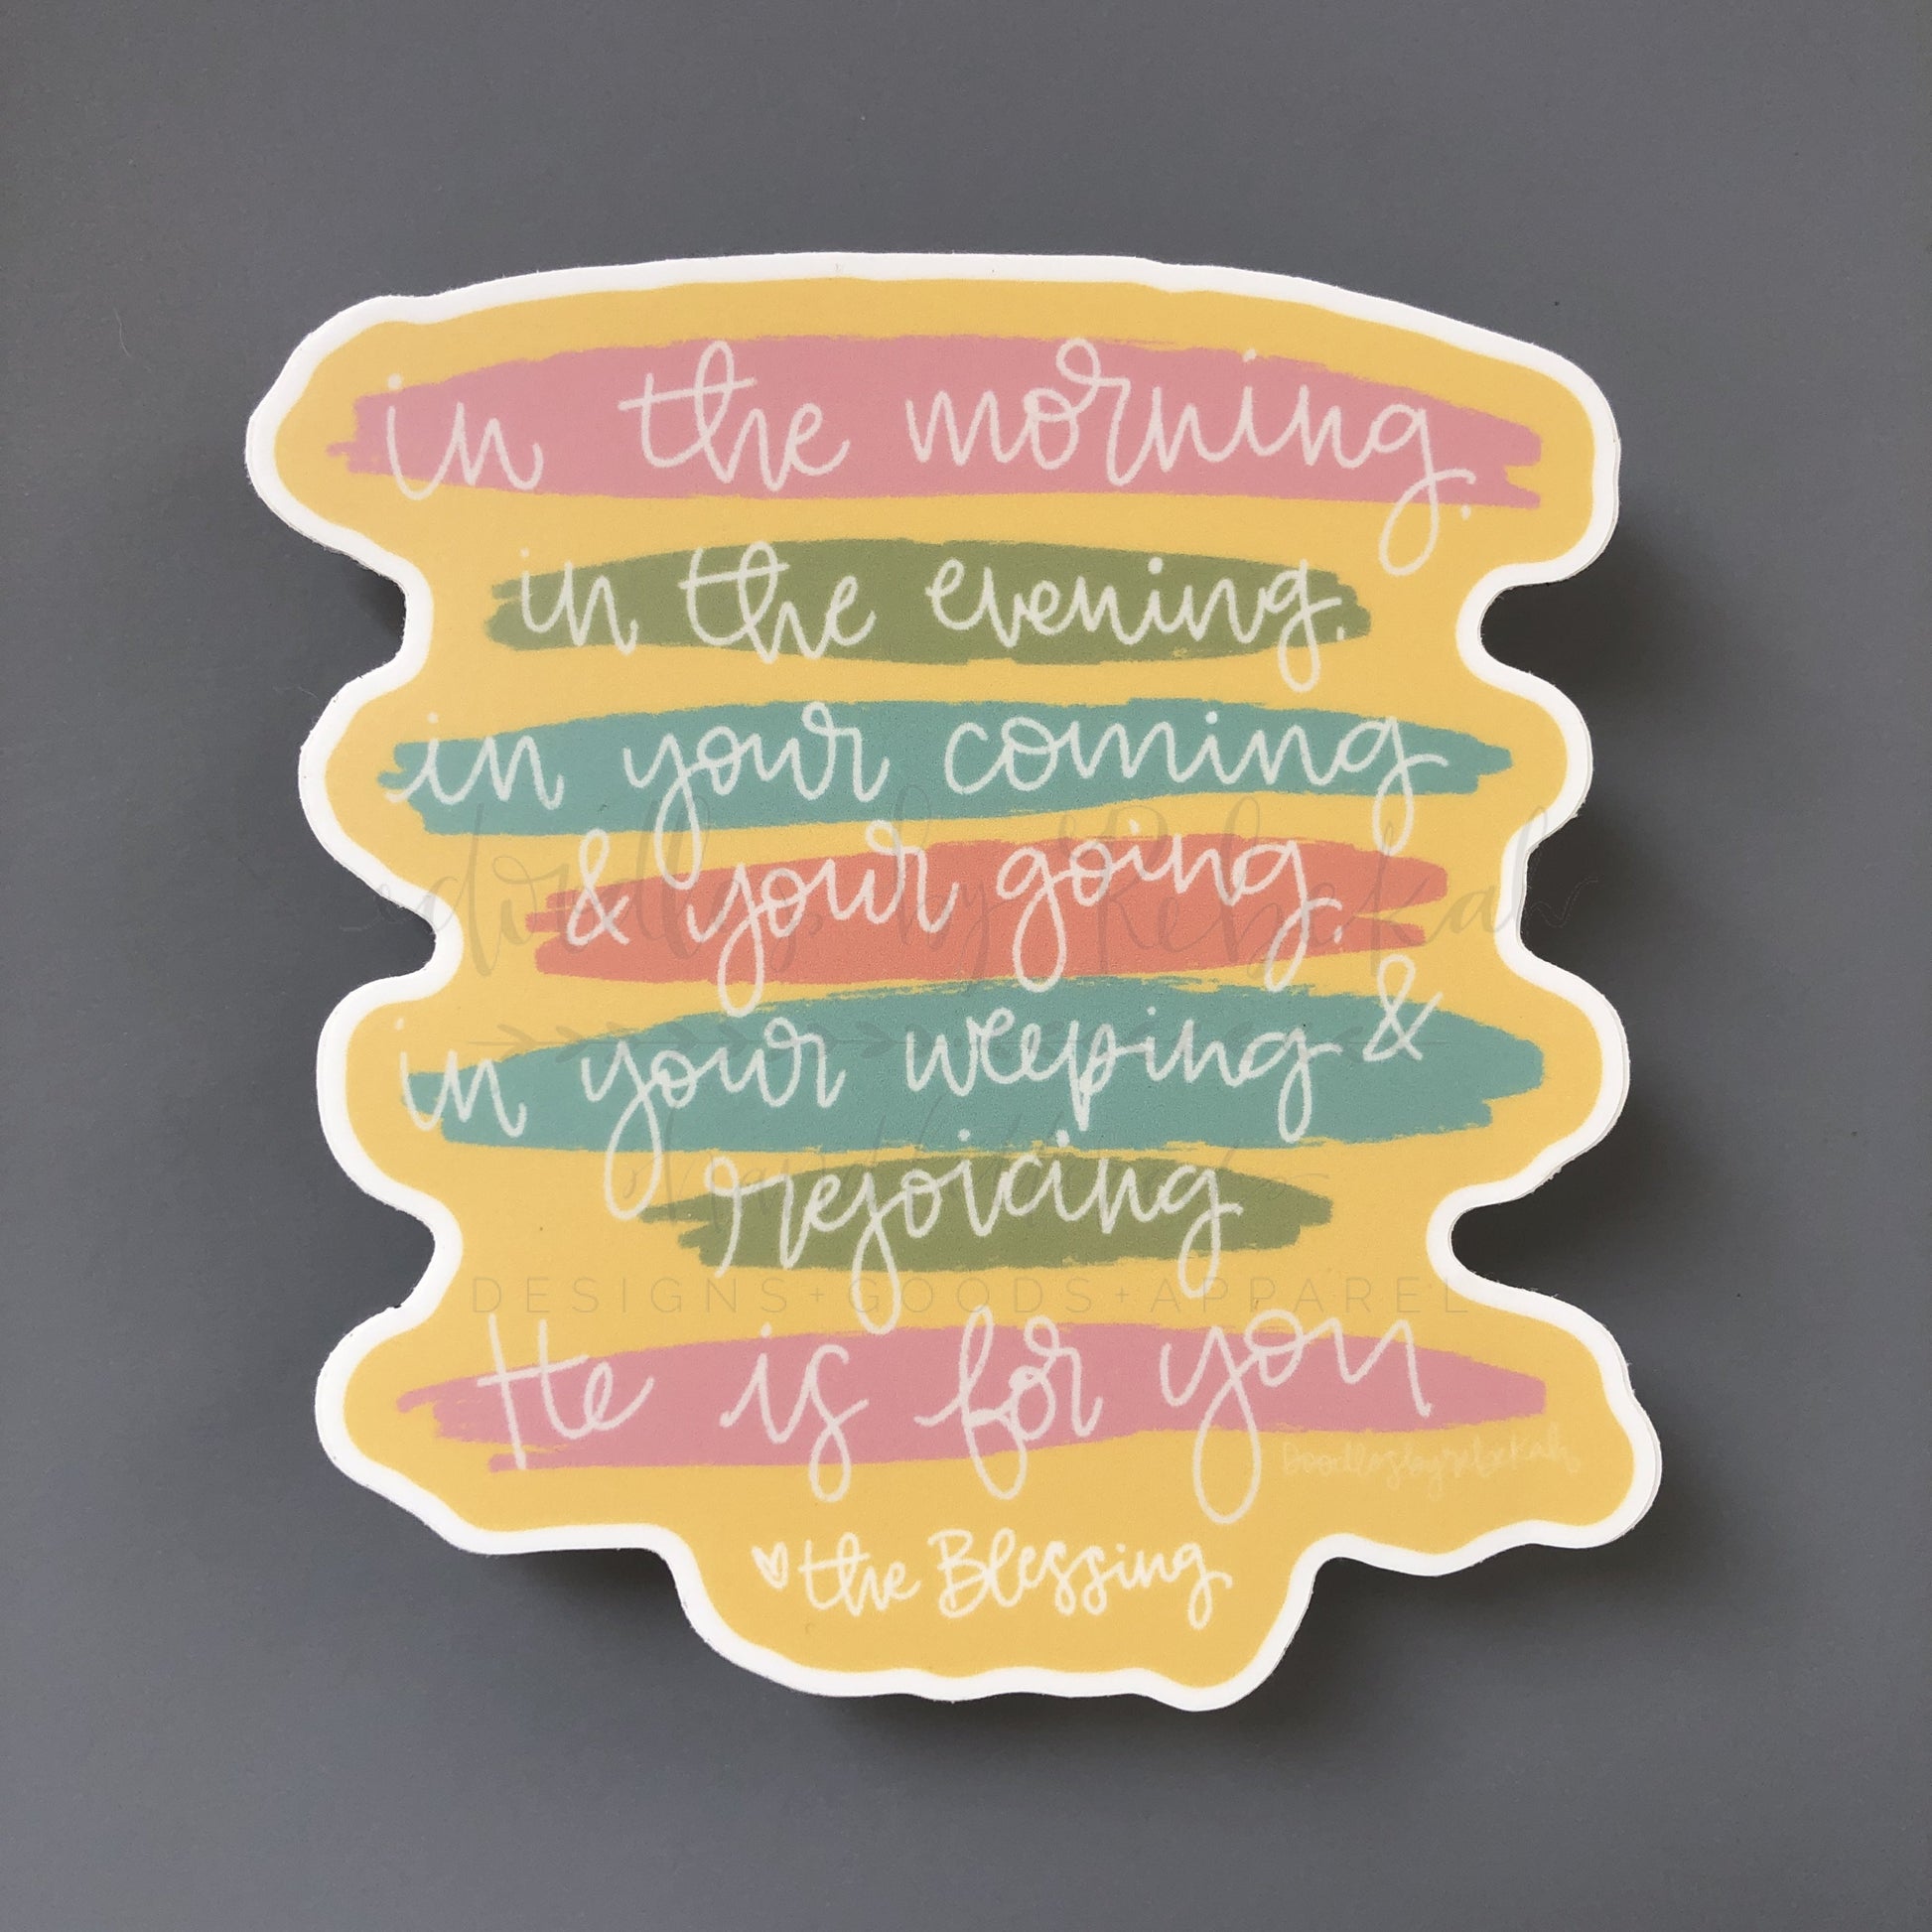 in the morning.
in the evening.
in your coming
& your going.
in your weeping &
rejoicing
He is for you
doodlesbyrebekah
♡ the Blessing
doodles by Rebekah
hand lettered
DESIGNS + GOODS + APPAREL